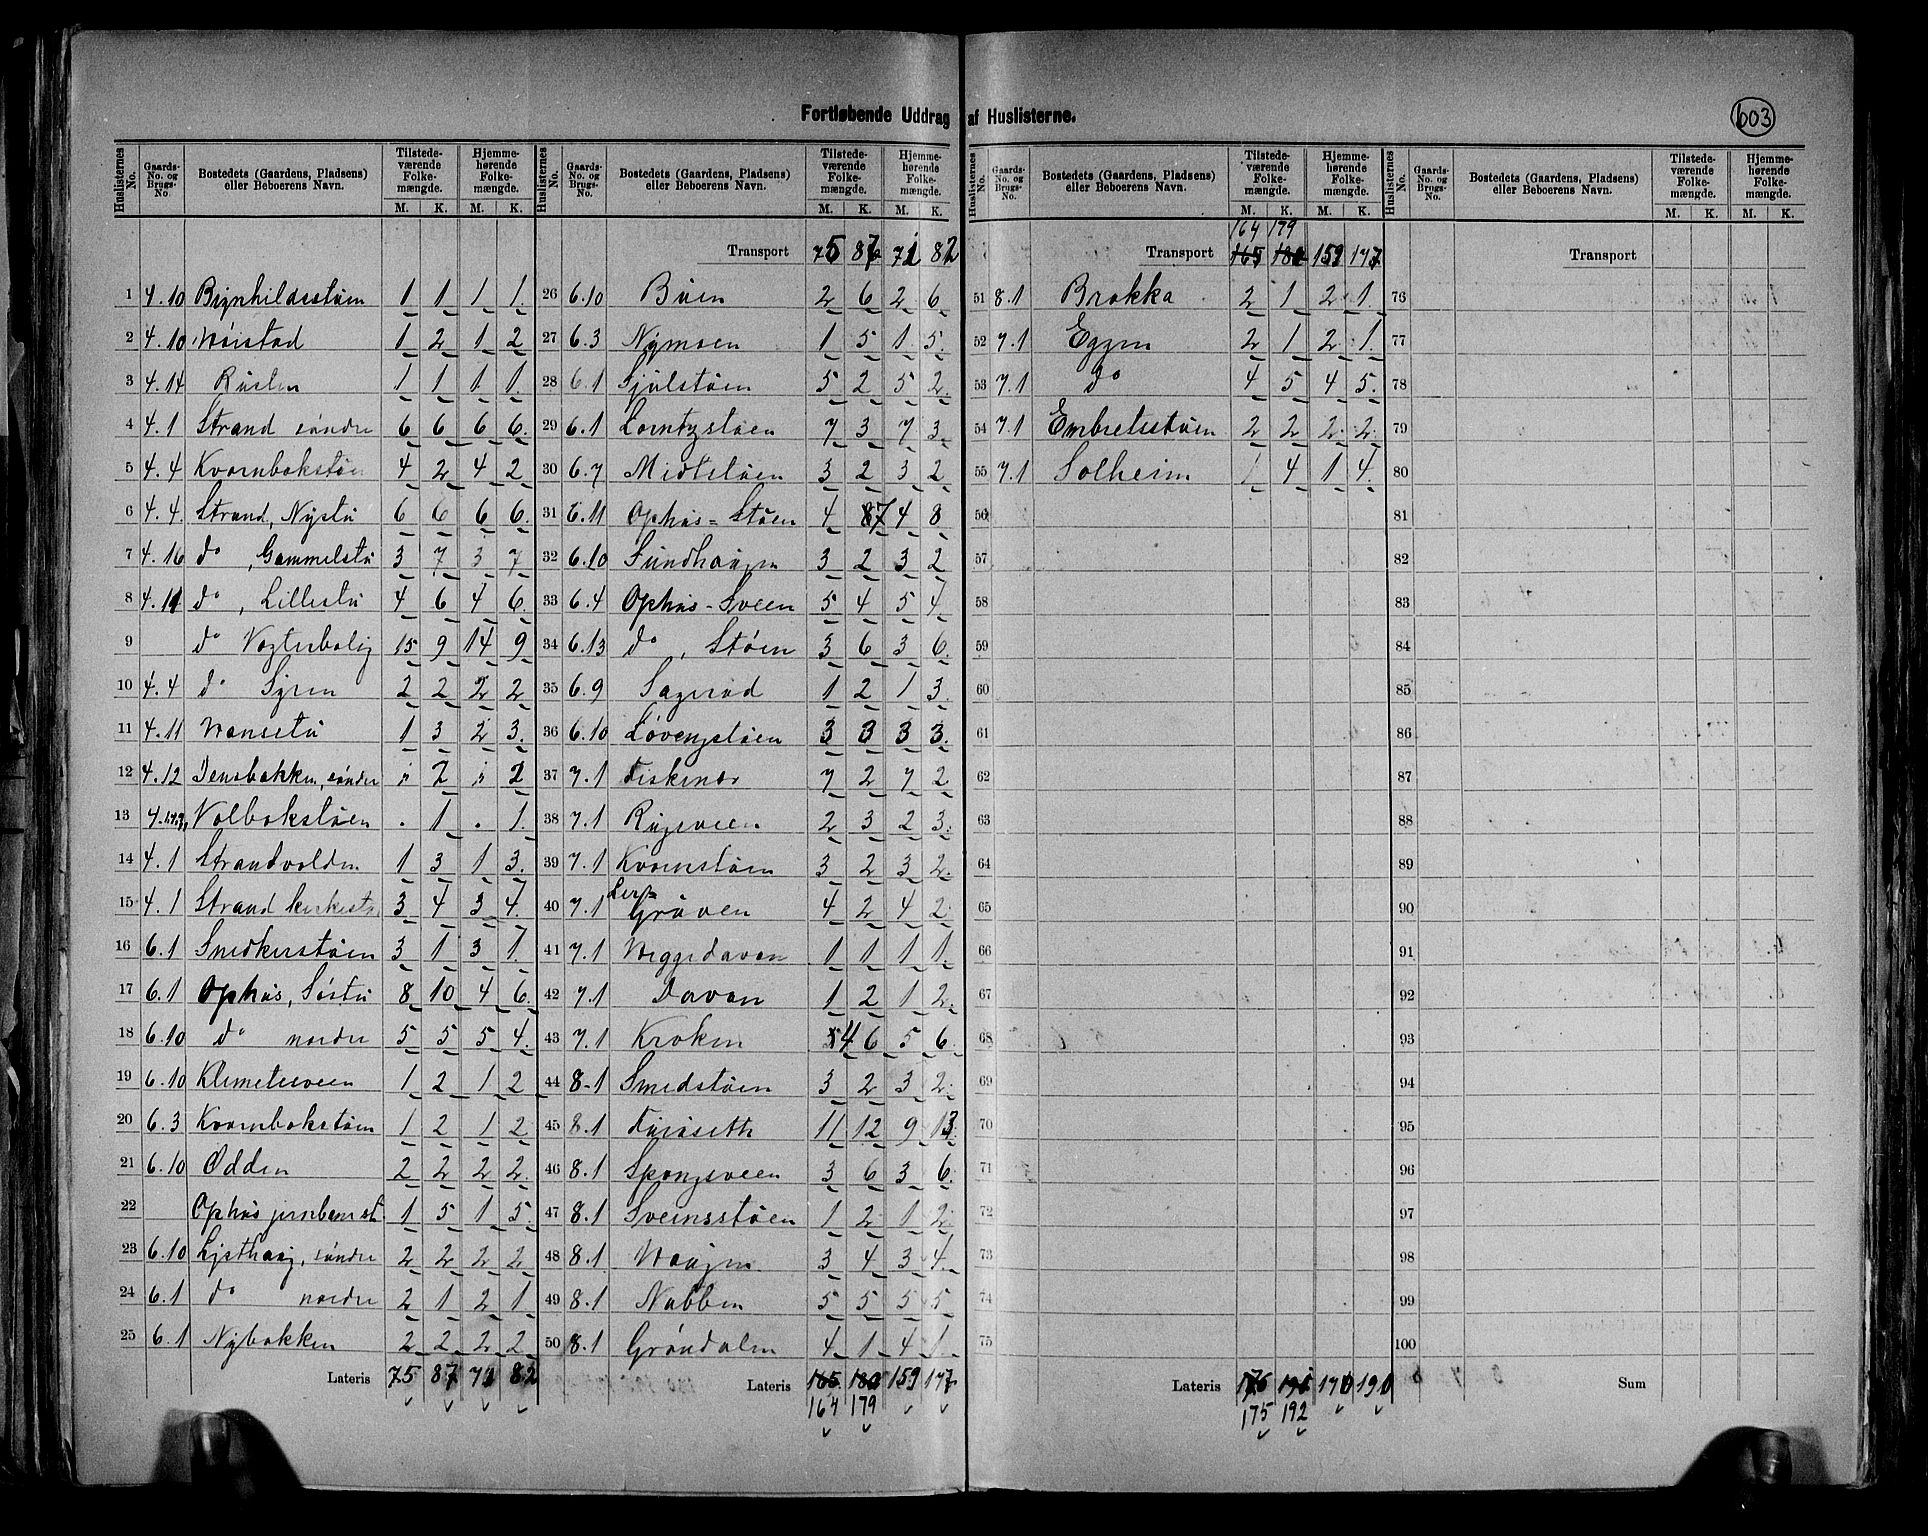 Fortløbende Uddrag af Huslisterne.
603
Huslisternes No. Gaards-No. og Brugs-No. Bostedets (Gaardens, Pladsens) eller Beboerens Navn. Tilstedeværende Folkemængde. M. K. Hjemmehørende Folkemængde. M. K.
1 4.10 1 1 1 1
2 4.10 1 2 1 2
3 4.14 Rusten 1 1 1 1
4 4.1 Strand søndre 6 6 6 6
5 4.4 Kvernbekstøen 4 2 4 2
6 4.4 Strand, Nystu 6 6 6 6
7 4.16 do , Gammelstu 3 7 3 7
8 4.11 do , Lillestu 4 6 4 6
9 do Vogterbolig 15 9 14 9
10 4.4 do 2 2 2 2
11 4.11 1 3 2 3
12 4.12 søndre 2 2
13 Valbakstøen . 1 . 1
14 4.1 Strandvolden 1 3 1 3
15 4.1 Strand 3 4 3 4
16 6.1 Snedkerstøen 3 1 3 1
17 6.1 Ophus, Søstu 8 10 4 6
18 6.10 do nordre 5 5 5 4
19 6.10 Klemetsveen 1 2 1 2
20 6.3 Kvernbekstøen 1 2 1 2
21 6.10 Odden 2 2 2 2
22 Ophus jernbanest. 1 5 1 5
23 6.10 Lysthaug, søndre 2 2 2 2
24 6.1 do nordre 2 1 2 1
25 6.1 Nybakken 2 2 2 2
Lateris 75 87 71 82
Transport 75 87 71 82
26 6.10 Buen 2 6 2 6
27 6.3 Nymoen 1 5 1 5
28 6.1 5 2 5 2
29 6.1 Lorntzstøen 7 3 7 3
30 6.7 Midtstøen 3 2 3 2
31 6.11 Ophus-Støen 4 7 4 8
32 6.10 Sundhaugen 3 2 3 2
33 6.4 Ophus-Sveen 5 4 5 4
34 6.13 do , Støen 3 6 3 6
35 6.9 1 2 1 3
36 6.10 Løvengstøen 3 3 3 3
37 7.1 Fiskenes 7 2 7 2
38 7.1 Rugsveen 2 3 2 3
39 7.1 Kvernstøen 3 2 3 2
40 7.1 Grâven 4 2 4 2
41 7.1 Veggedaven 1 1 1 1
42 7.1 Davan 1 2 1 2
43 7.1 Kroken 4 6 5 6
44 8.1 Smedstøen 3 2 3 2
45 8.1 Furuseth 11 12 9 13
46 8.1 Spongsveen 3 6 3 6
47 8.1 Sveinsstøen 1 2 1 2
48 8.1 Haugen 3 4 3 4
49 8.1 Nabben 5 5 5 5
50 8.1 Grøndalen 4 1 4 1
Lateris 165 180 159 177
164 179
Huslisternes No. Gaards-No. og Brugs-No. Bostedets (Gaardens, Pladsens) eller Beboerens Navn. Tilstedeværende Folkemængde. M. K. Hjemmehørende Folkemængde. M. K.
164 179
Transport 165 180 159 177
51 8.1 Brakka 2 1 2 1
52 7.1 Eggen 2 1 2 1
53 7.1 do 4 5 4 5
54 7.1 Embretsstøen 2 2 2 2
55 7.1 Solheim 1 4 1 4
56
57
58
59
60
61
62
63
64
65
66
67
68
69
70
71
72
73
74
75
Lateris 176 170 190
175 192
Transport
76
77
78
79
80
81
82
83
84
85
86
87
88
89
90
91
92
93
94
95
96
97
98
99
100
Sum